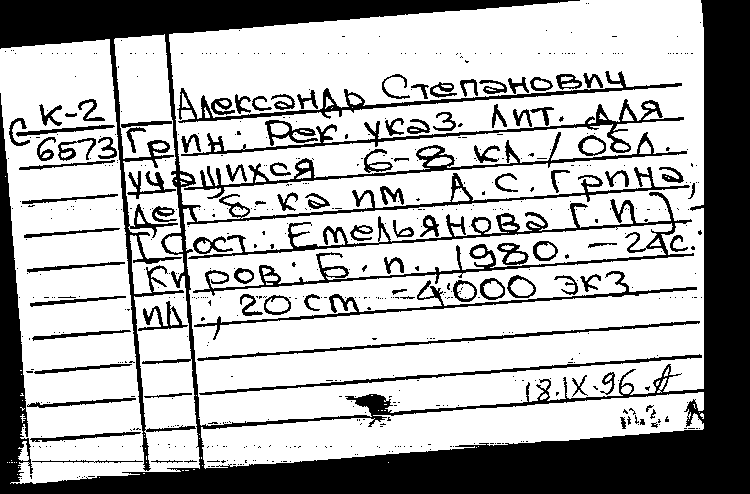 К-2
С 6573
Александр Степанович
Грин: Рек. указ. лит. для
учащихся 6-8 кл. / Обл.
дет. б-ка им. А.С. Грина;
[Сост.: Емельянова Г.И.] -
Киров: Б. и., 1980. - 24с.:
ил.; 20 см. - 4000 экз.
18.IX.96.